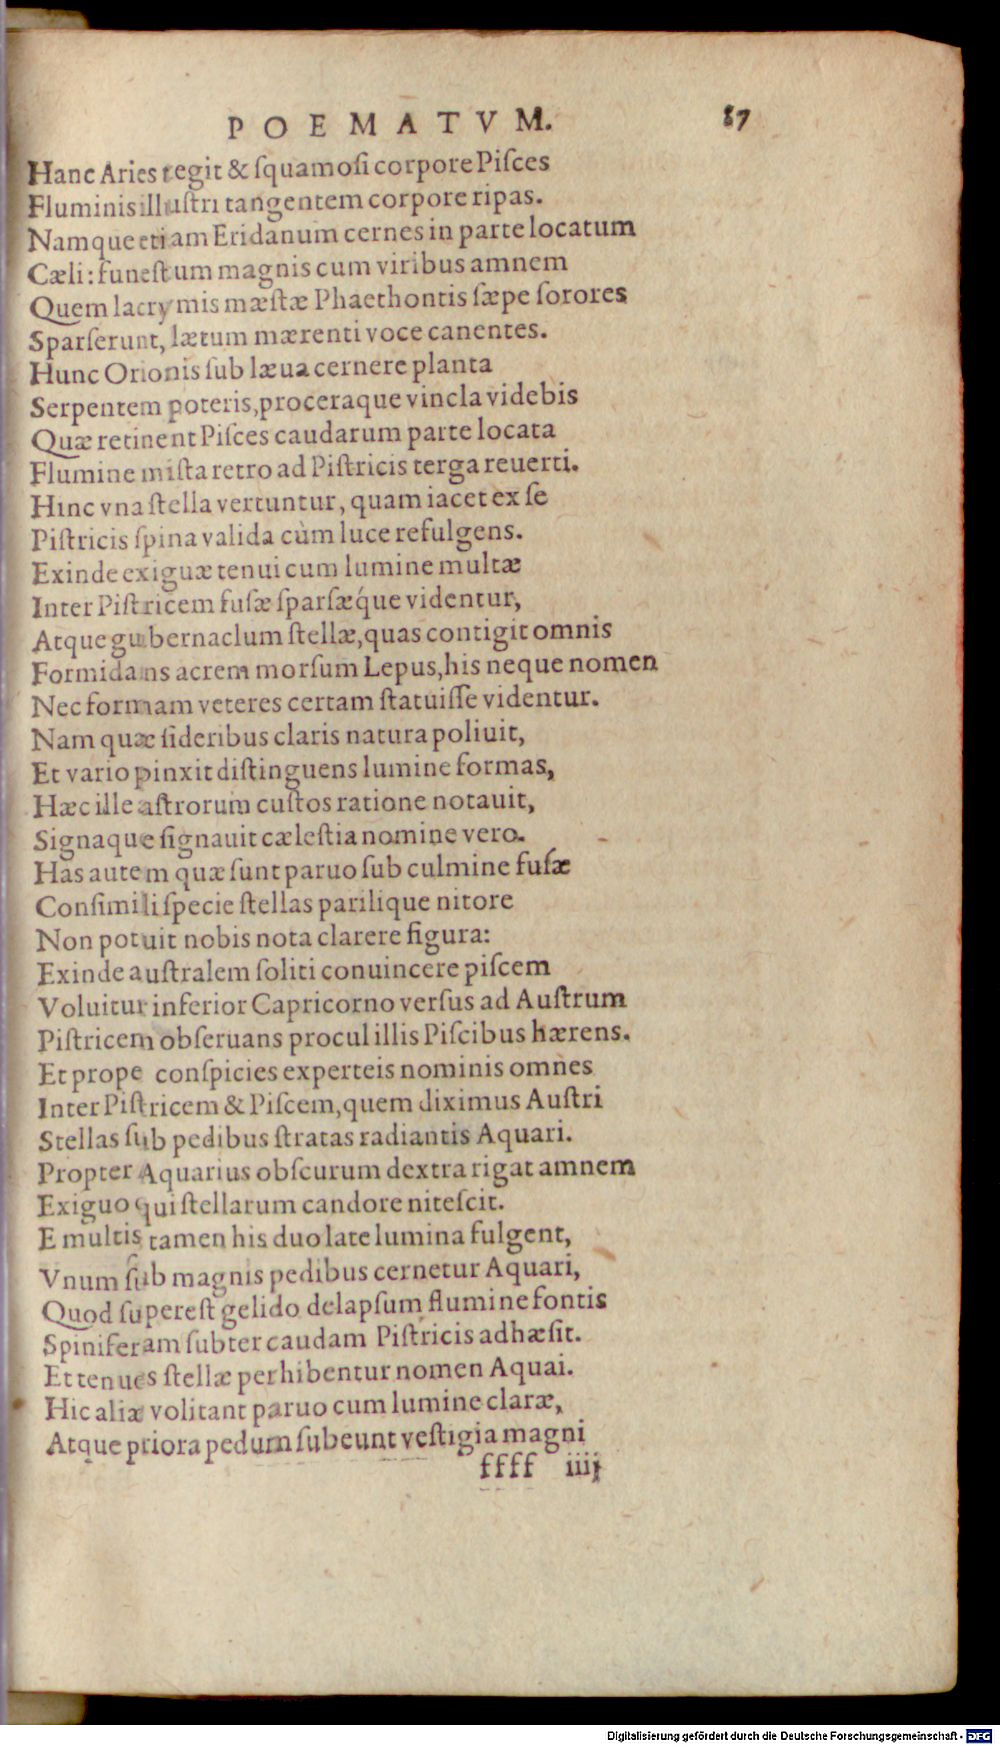 POEMATVM. 87
Hanc Aries tegit & ſquamoſi corpore Piſces
Fluminis illuſtri tangentem corpore ripas.
Namque etiam Eridanum cernes in parte locatum
Cæli: funeſtum magnis cum viribus amnem
Quem lacrymis mæſtæ Phaethontis ſæpe ſorores
Sparſerunt, lætum mærenti voce canentes.
Hunc Orionis ſub læua cernere planta
Serpentem poteris, proceraque vincla videbis
Quæ retinent Piſces caudarum parte locata
Flumine miſta retro ad Piſtricis terga reuerti.
Hinc vna ſtella vertuntur, quam iacet ex ſe
Piſtricis ſpina valida cùm luce refulgens.
Exinde exiguæ tenui cum lumine multæ
Inter Piſtricem fuſæ ſparſǽque videntur,
Atque gubernaclum ſtellæ, quas contigit omnis
Formidans acrem morſum Lepus, his neque nomen
Nec formam veteres certam ſtatuiſſe videntur.
Nam quæ ſideribus claris natura poliuit,
Et vario pinxit diſtinguens lumine formas,
Hæc ille aſtrorum cuſtos ratione notauit,
Signaque ſignauit cæleſtia nomine vero.
Has autem quæ ſunt paruo ſub culmine fuſæ
Conſimili ſpecie ſtellas parilique nitore
Non potuit nobis nota clarere figura:
Exinde auſtralem ſoliti conuincere piſcem
Voluitur inferior Capricorno verſus ad Auſtrum
Piſtricem obſeruans procul illis Piſcibus hærens.
Et prope conſpicies experteis nominis omnes
Inter Piſtricem & Piſcem, quem diximus Auſtri
Stellas ſub pedibus ſtratas radiantis Aquari.
Propter Aquarius obſcurum dextra rigat amnem
Exiguo qui ſtellarum candore niteſcit.
E multis tamen his duo late lumina fulgent,
Vnum ſub magnis pedibus cernetur Aquari,
Quod ſupereſt gelido delapſum flumine fontis
Spiniferam ſubter caudam Piſtricis adhæſit.
Et tenues ſtellæ perhibentur nomen Aquai.
Hic aliæ volitant paruo cum lumine claræ,
Atque priora pedum ſubeunt veſtigia magni
ffff iiij
Digitalisierung gefördert durch die Deutsche Forschungsgemeinschaft - DFG